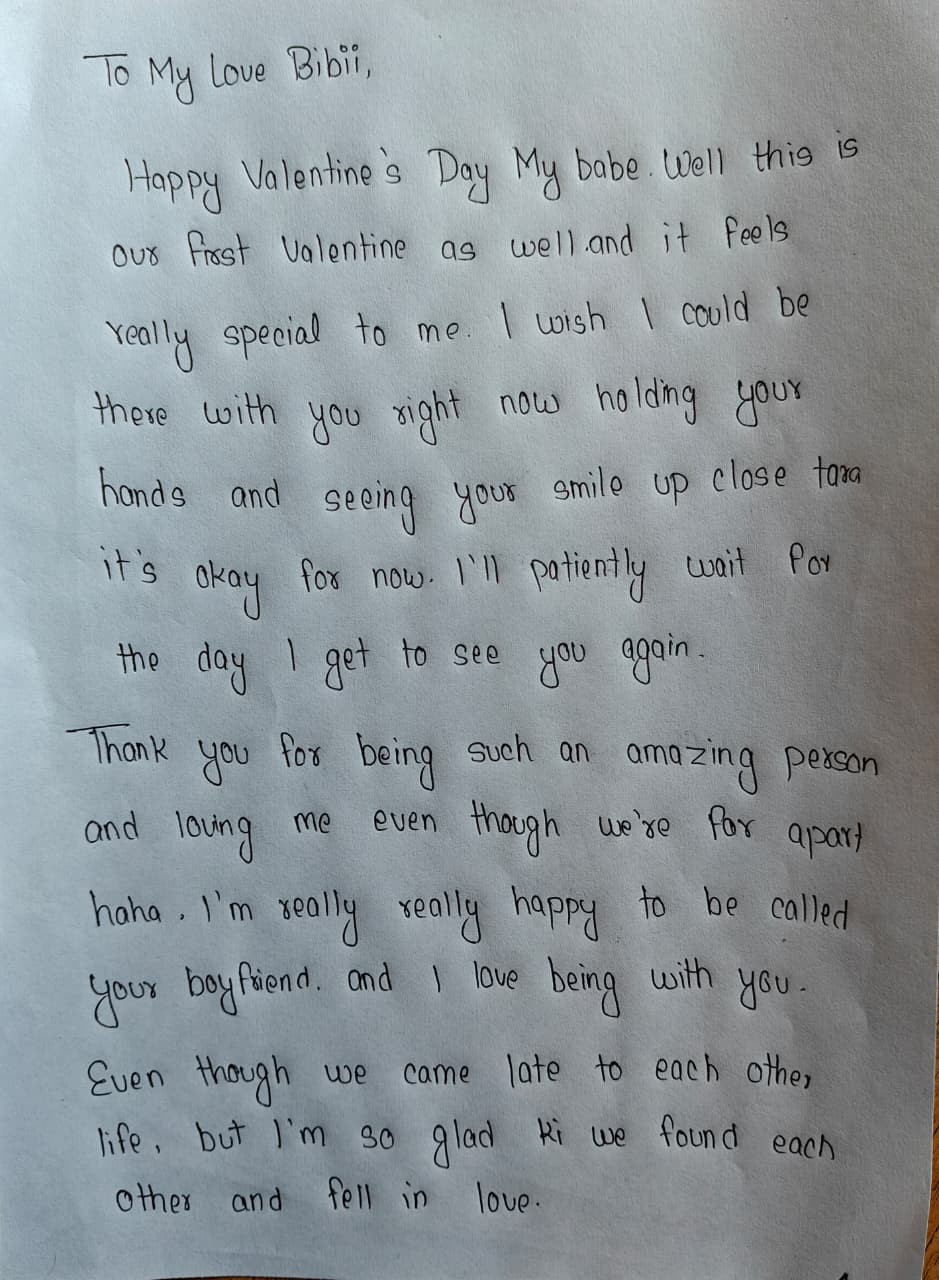 To My Love Bibii,
Happy Valentine's Day My babe. Well this is
our first Valentine as well.and it feels
really special to me. I wish I could be
there with you right now holding your
hands and seeing your smile up close tara
it's okay for now. I'll patiently wait for
the day I get to see you again.
Thank you for being such an amazing person
and loving me even though we're far apart
haha. I'm really really happy to be called
your boyfriend. and I love being with you.
Even though we came late to each other
life, but I'm so glad ki we found each
other and fell in love.